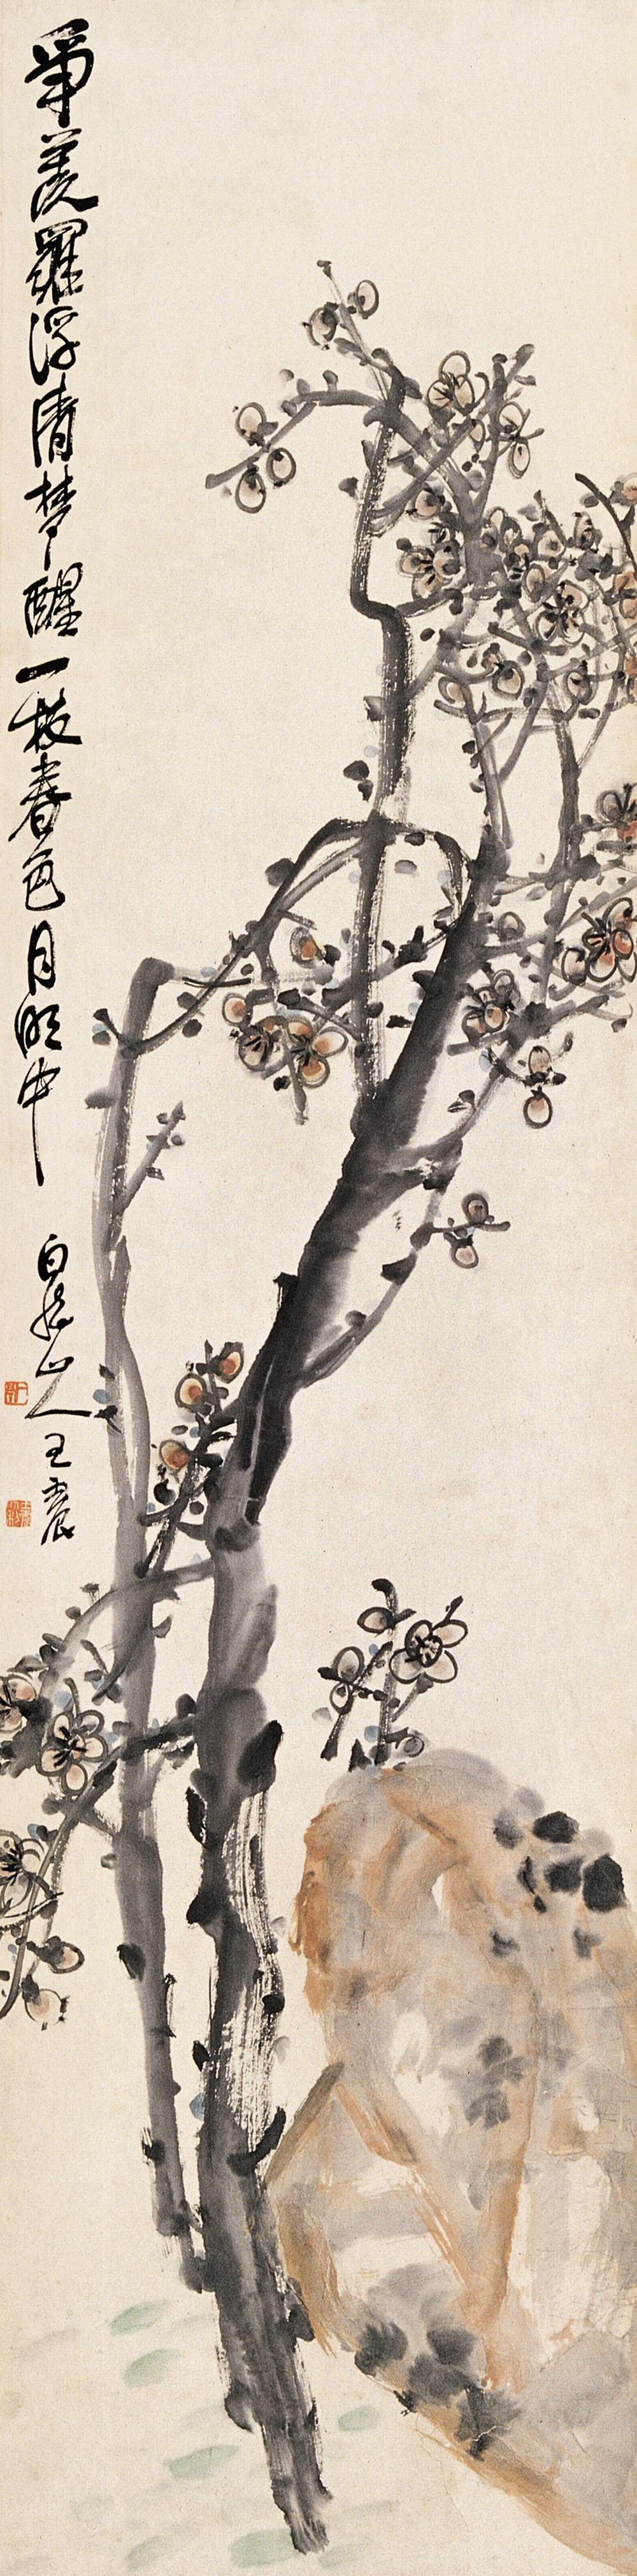 争羡羅浮清夢醒一枝春色月明中
白龍山人王震